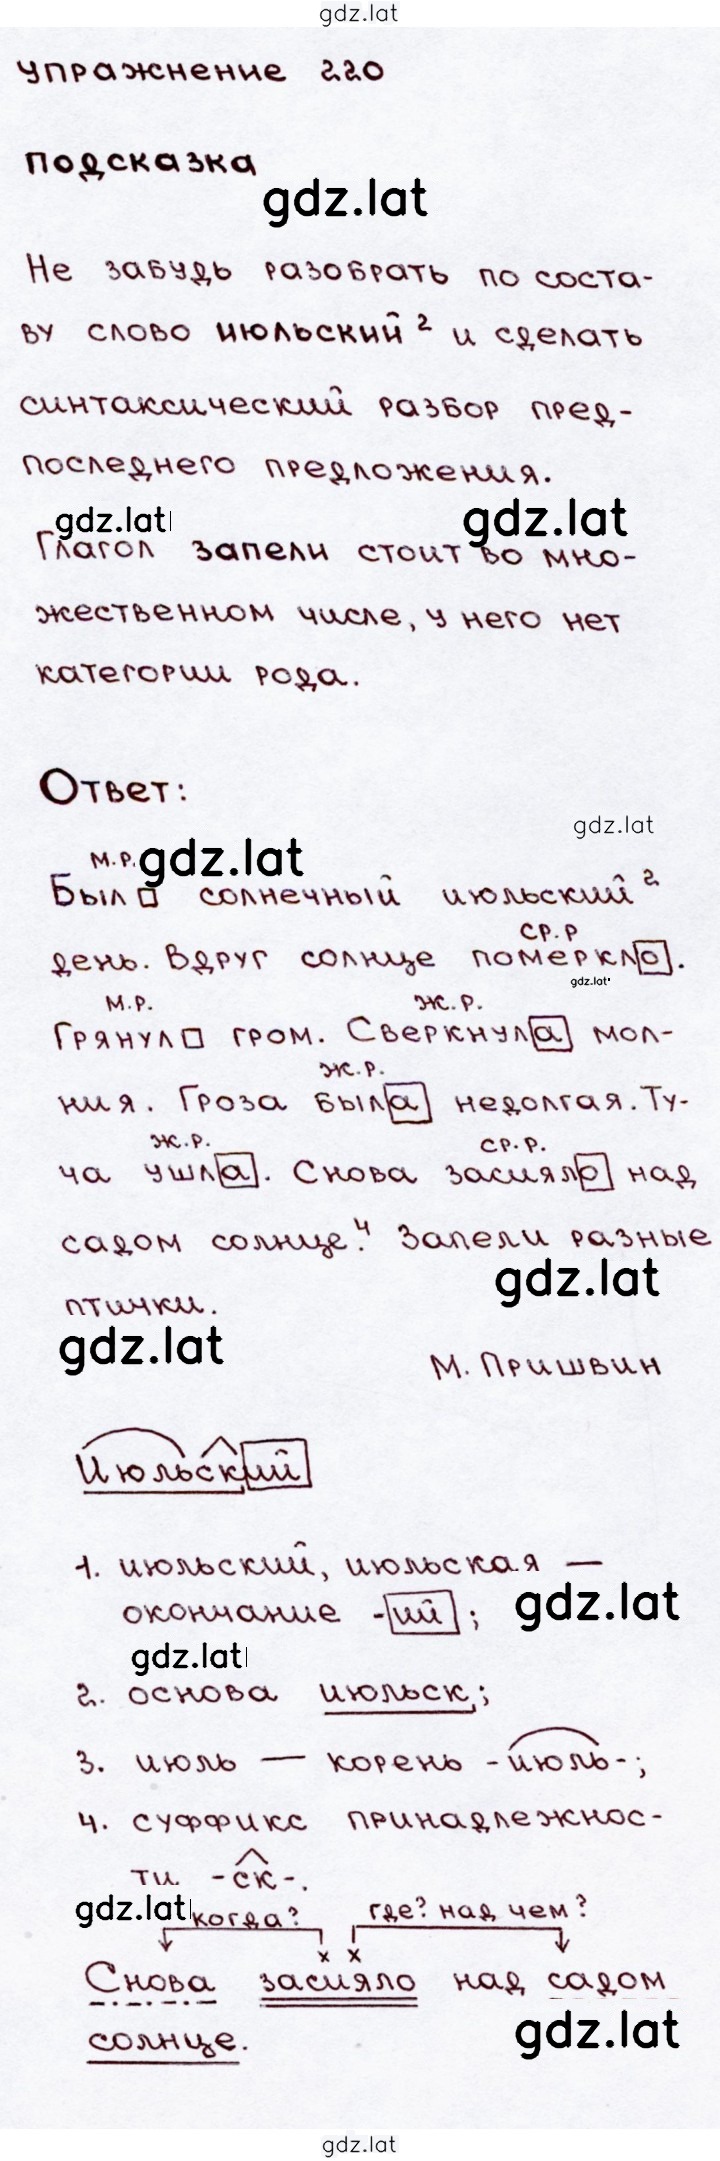 gdz.lat
упражнение 220
подсказка
gdz.lat
Не забудь разобрать по соста-
ву слово июльский 2 и сделать
синтаксический разбор пред-
последнего предложения.
gdz.lat gdz.lat
Глагол запели стоит во мно-
жественном числе, у него нет
категории рода.
Ответ:
gdz.lat
м.р. gdz.lat
Был солнечный июльский 2
ср.р
день. Вдруг солнце померкло.
gdz.lat
м.р. ж.р.
Грянул гром. Сверкнула мол-
ж.р.
ния. Гроза была недолгая. Ту-
ж.р. ср.р.
ча ушла. Снова засияло над
садом солнце. 4 Запели разные
gdz.lat
птички.
gdz.lat
М. Пришвин
Июльский
1. июльский, июльская —
окончание -ий ;
gdz.lat
gdz.lat
2. основа июльск;
3. июль — корень -июль-;
4. суффикс принадлежнос-
ти -ск-.
gdz.lat когда? где? над чем?
х х
Снова засияло над садом
солнце.
gdz.lat
gdz.lat